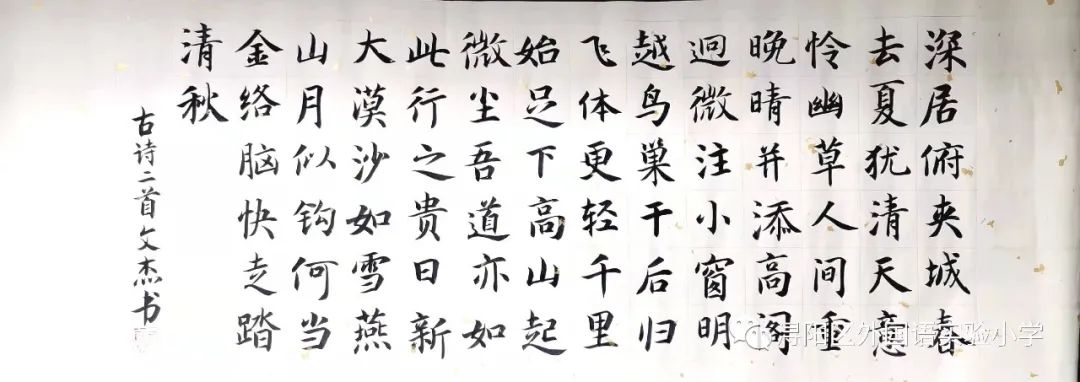 深居俯夹城春
去夏犹清天意
怜幽草人间重
晚晴并添高阁
迥微注小窗明
越鸟巢干后归
飞体更轻千里
始足下高山起
微尘吾道亦如
此行之贵日新
大漠沙如雪燕
山月似钩何当
金络脑快走踏
清秋
古诗二首文杰书
浔阳区外国语实验小学